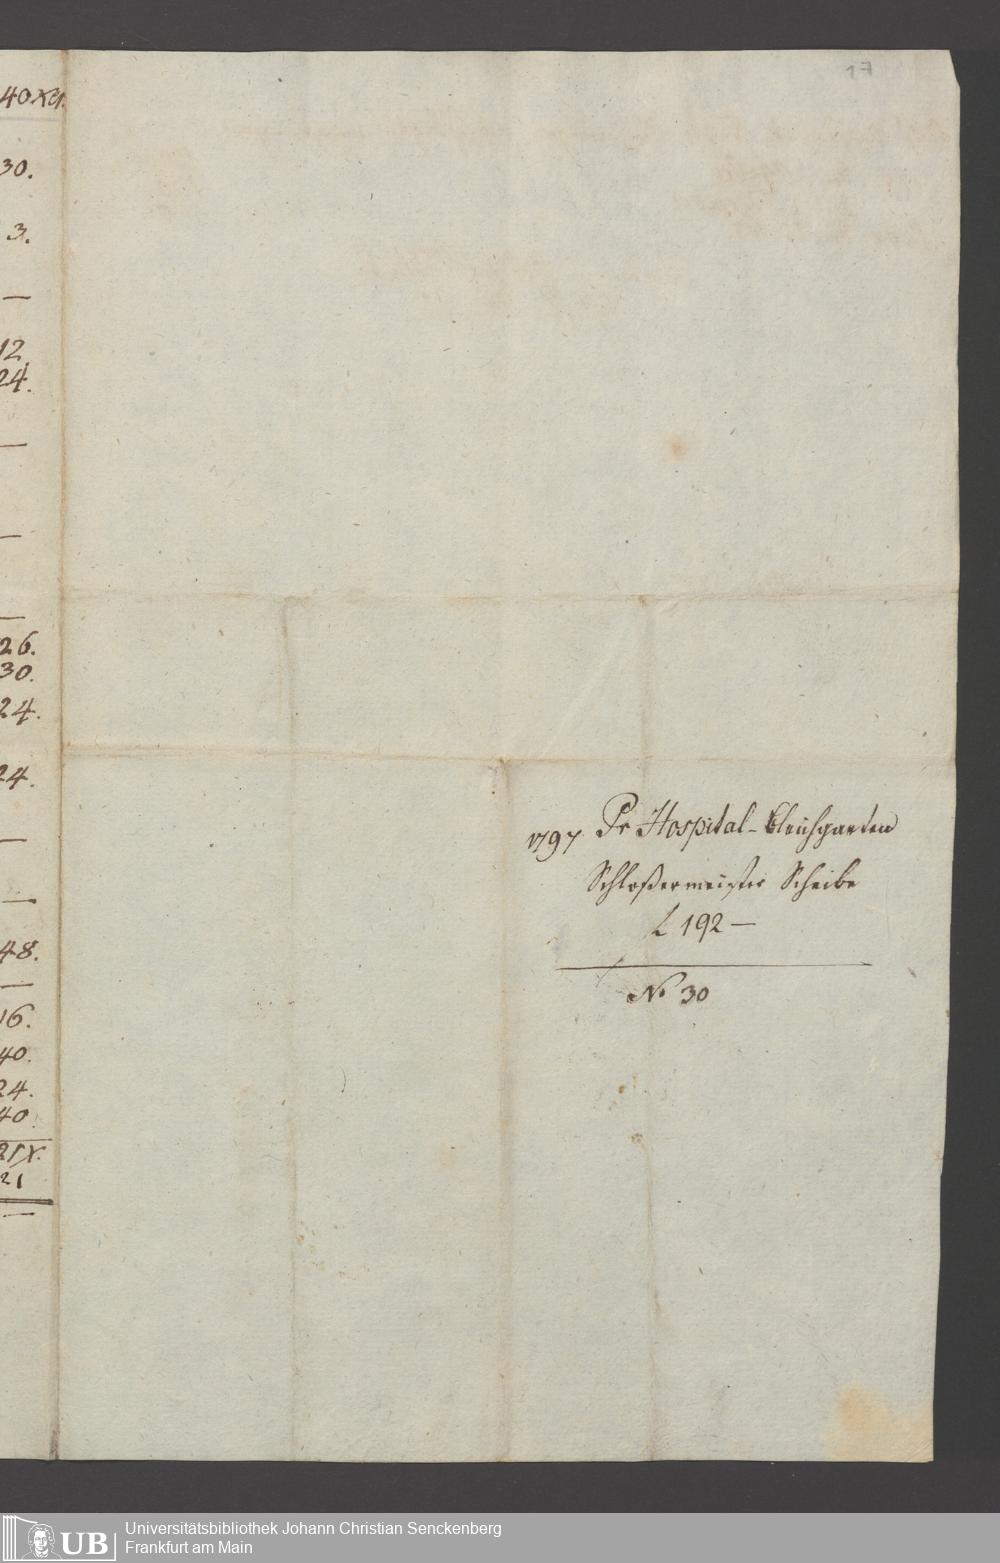 17
40 xr.
30.
3.
—
12
24.
—
—
—
26.
30.
24.
24.
—
—
48.
—
16.
40.
24.
40.
21 x.
21
—
1797. Pr Hospital-Bleichgarten
Schloßermeister Scheibe
f 192 —
No 30
Universitätsbibliothek Johann Christian Senckenberg
Frankfurt am Main
UB